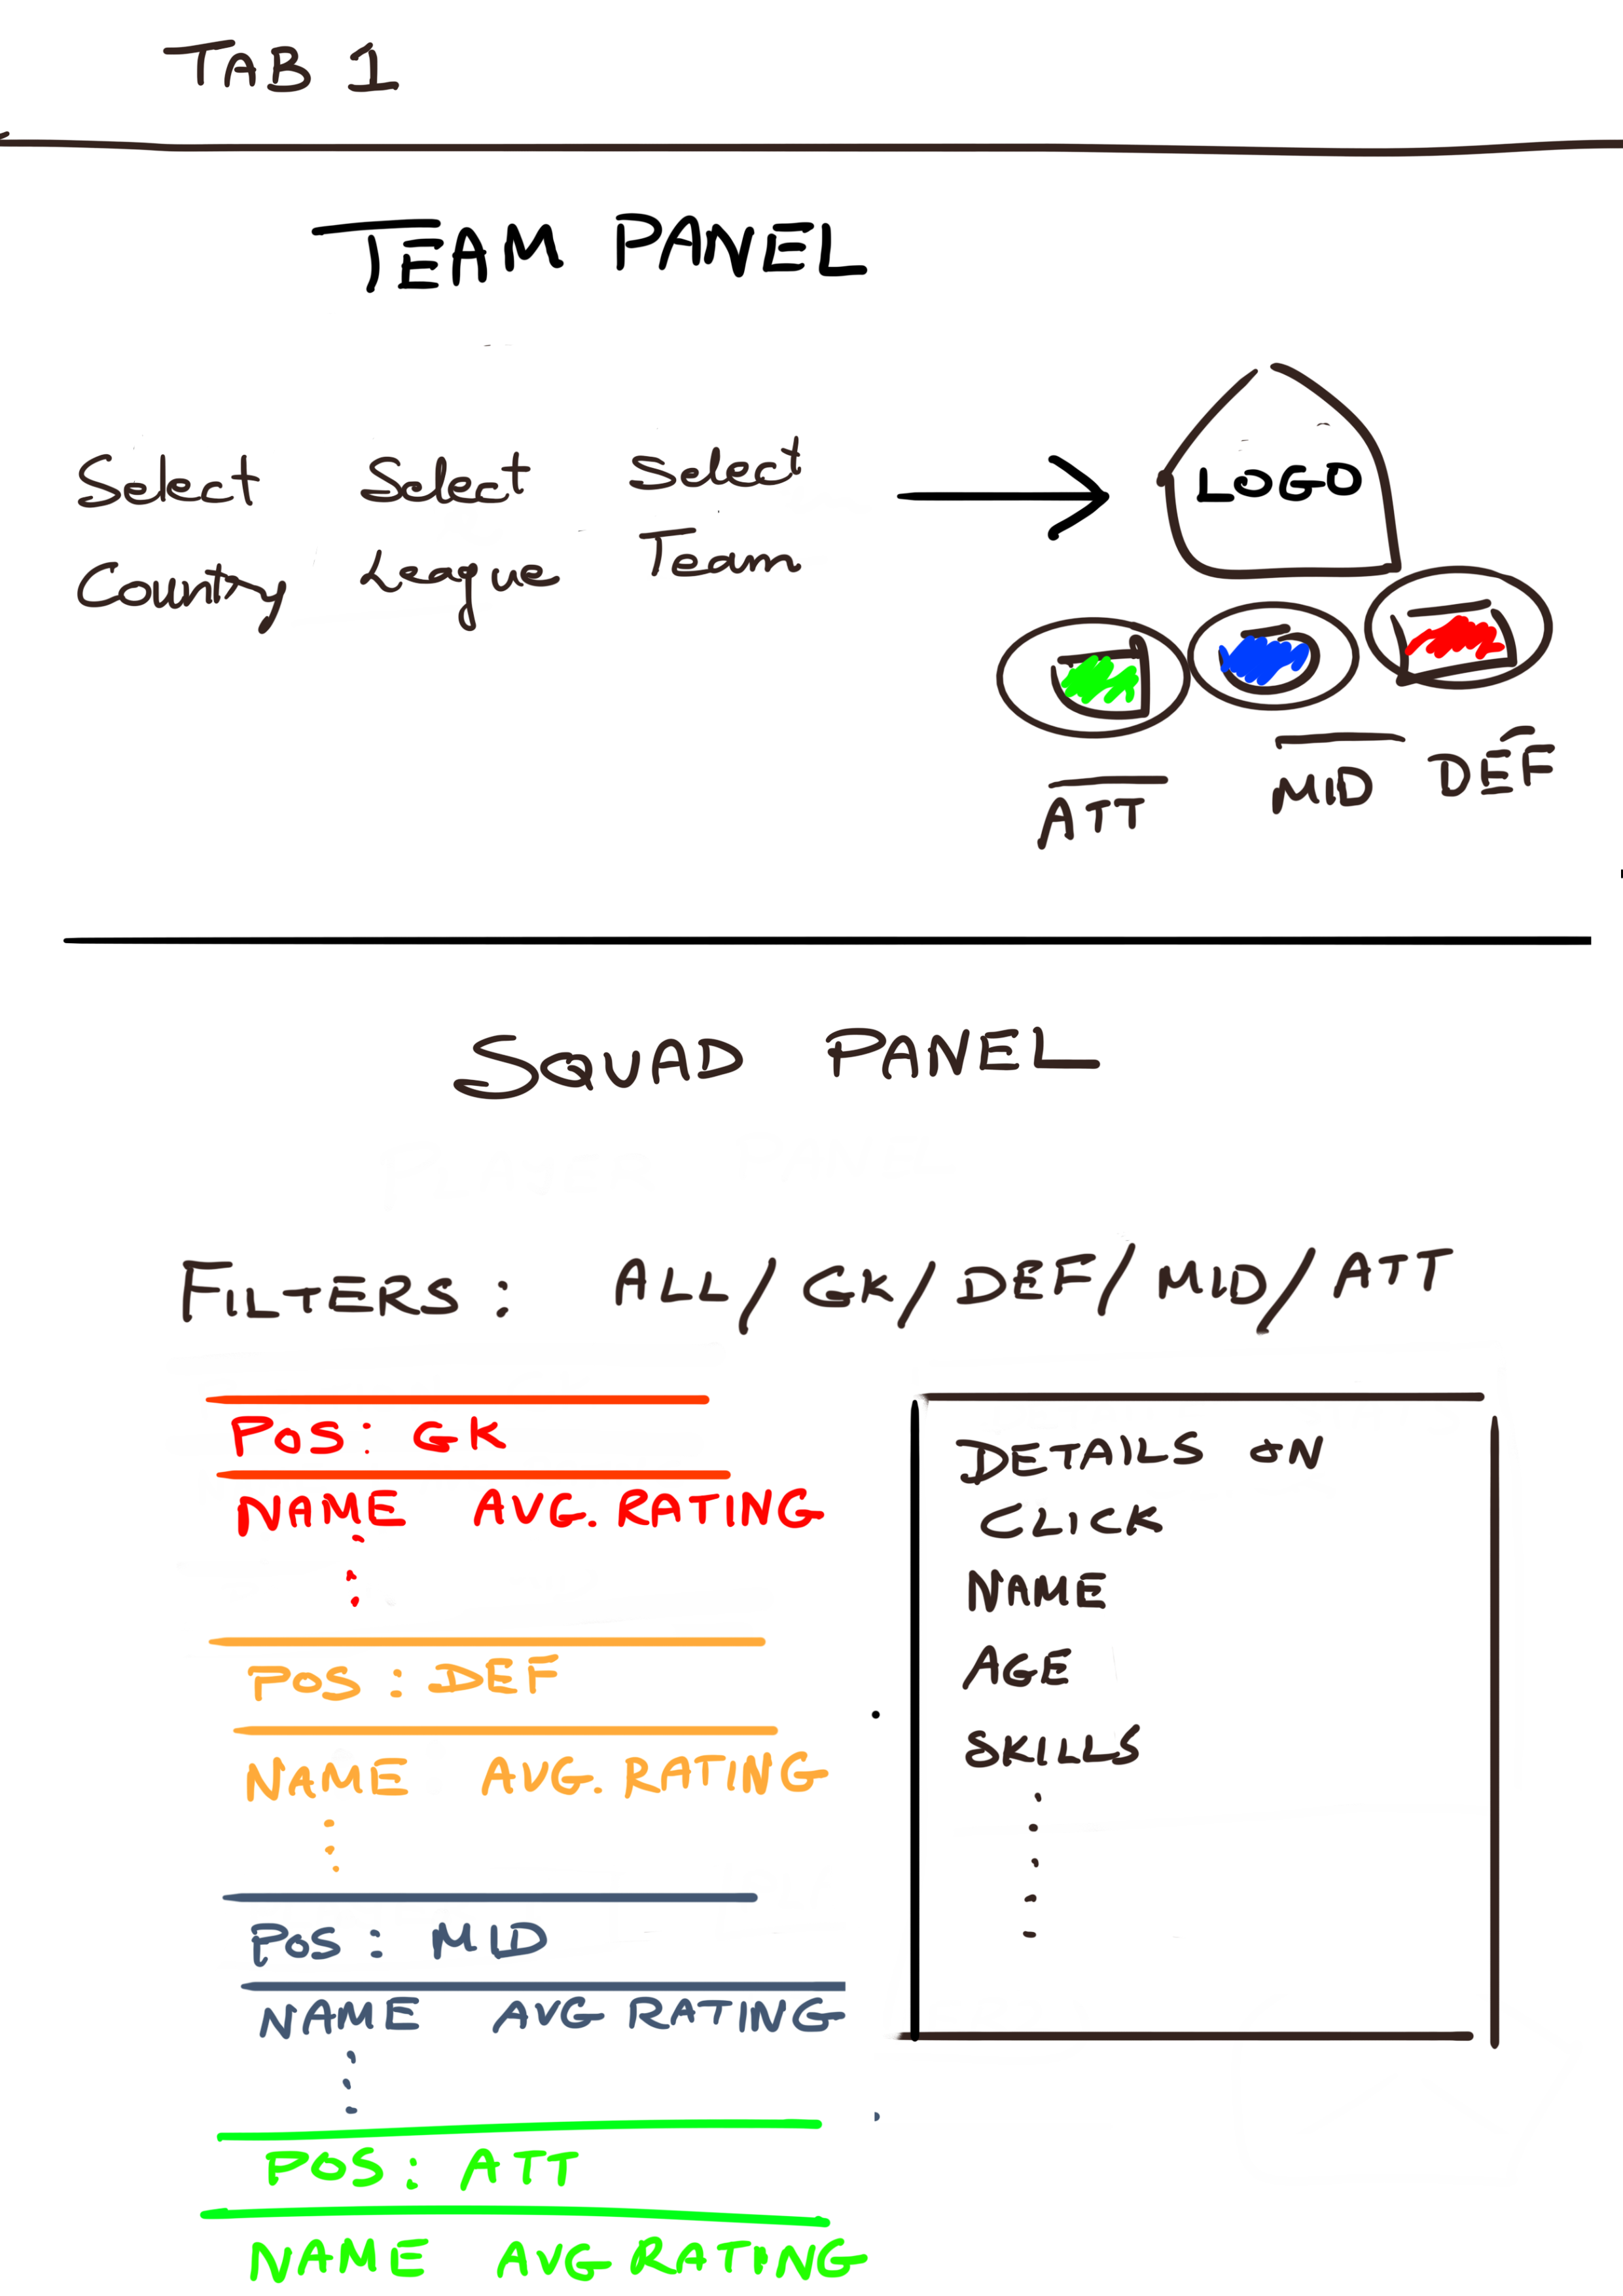 TAB 1
TEAM PANEL
Select Country
Select League
Select Team
LOGO
ATT
MID
DEF
SQUAD PANEL
FILTERS : ALL/GK/DEF/MID/ATT
POS: GK
NAME AVG. RATING
POS : DEF
NAME AVG. RATING
POS : MID
NAME AVG RATING
POS: ATT
NAME AVG RATING
DETAILS ON
CLICK
NAME
AGE
SKILLS